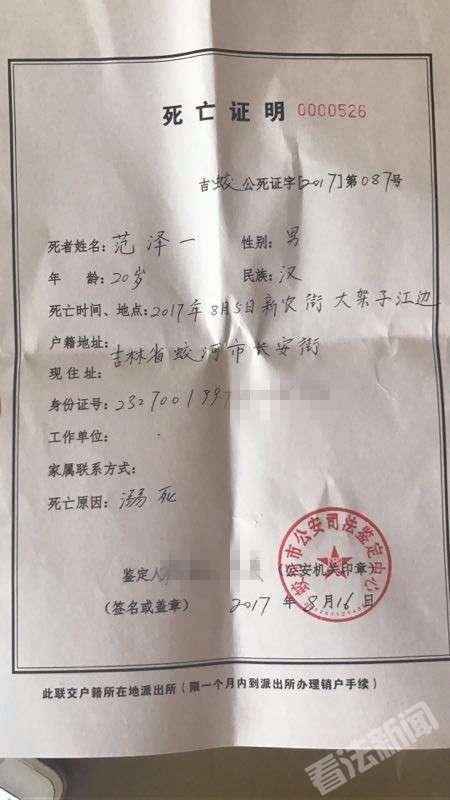 死亡证明 0000526
吉蛟公死证字[2017]第087号
死者姓名：范泽一 性别：男
年 龄：20岁 民族：汉
死亡时间、地点：2017年8月5日新农街 大架子江边
户籍地址：
吉林省蛟河市长安街
现住址：
身份证号：232700199
工作单位：
家属联系方式：
死亡原因：溺死
鉴定人 （公安机关印章）
（签名或盖章） 2017年8月16日
蛟河市公安司法鉴定中心
此联交户籍所在地派出所（限一个月内到派出所办理销户手续）
看法新闻